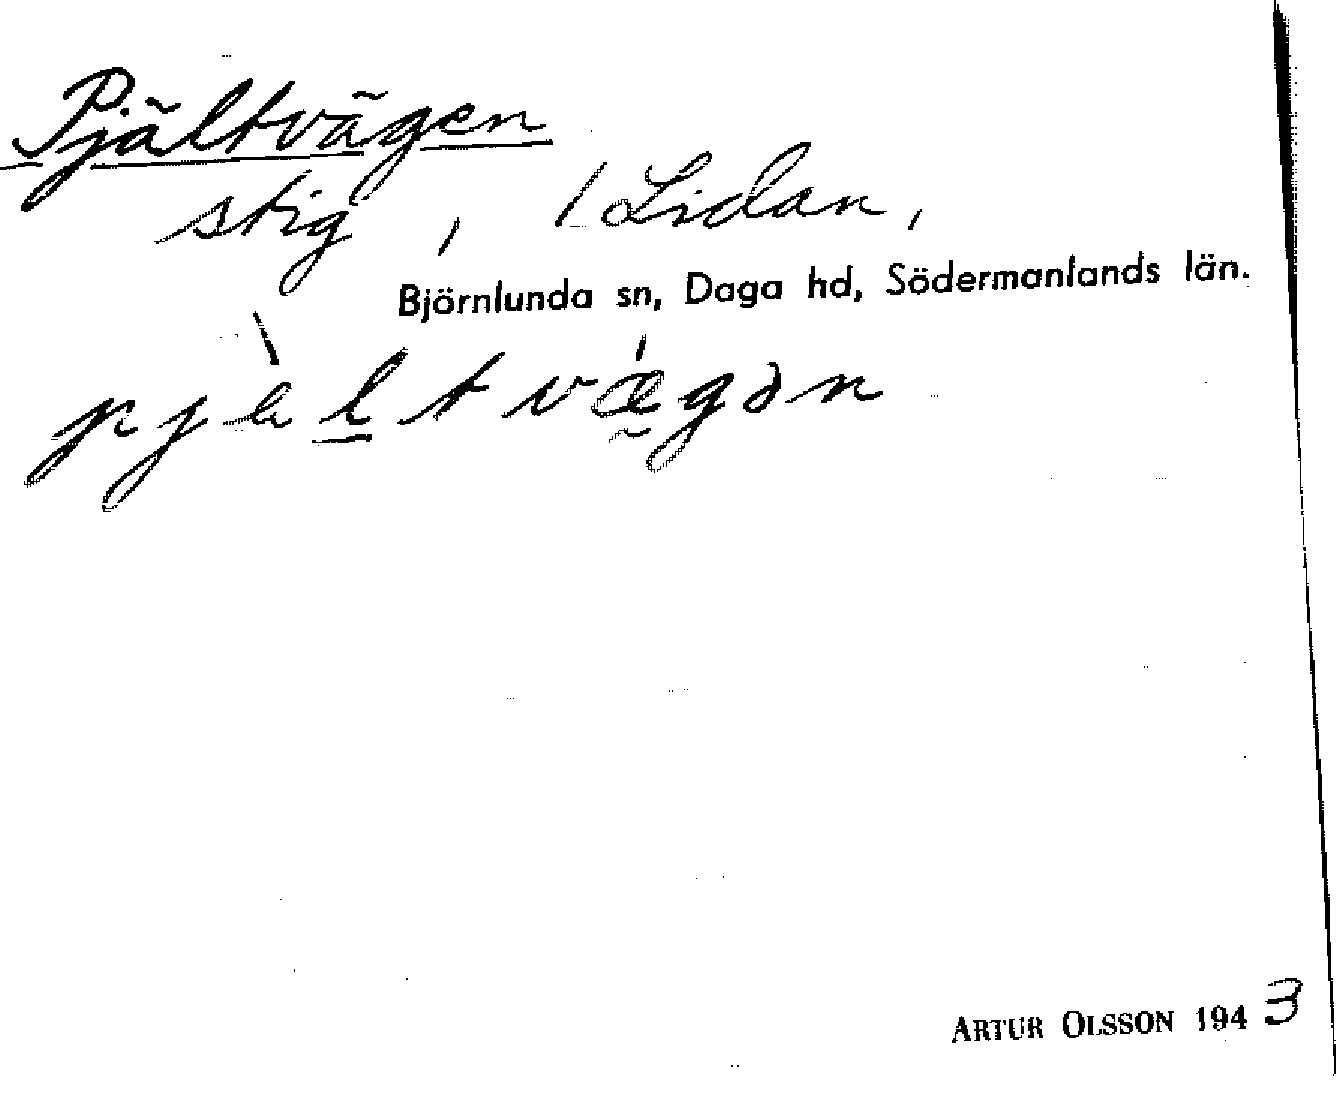 Pjältvägen
stig, / Lidan,
Björnlunda sn, Daga hd, Södermanlands län.
pjèltvǽgən
ARTUR OLSSON 1943